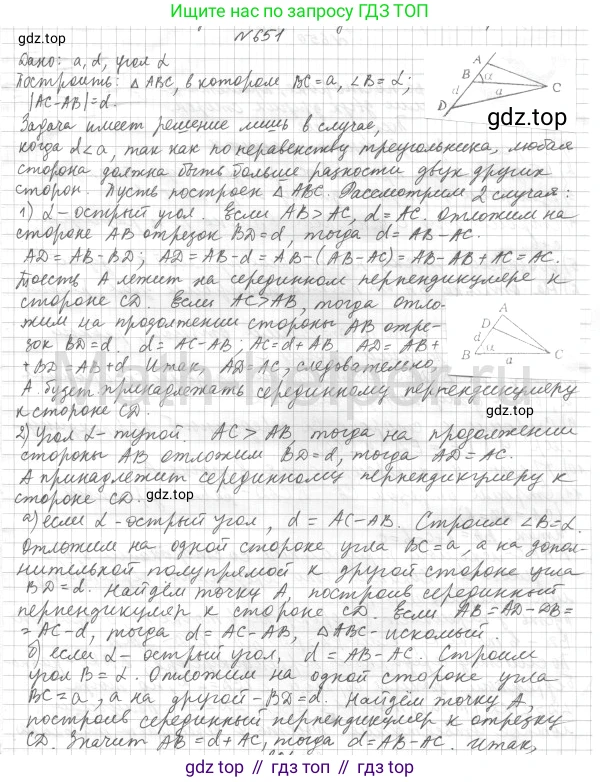 Ищите нас по запросу ГДЗ ТОП
№651
Дано: a, d, угол α
Построить: △ ABC, в котором BC = a, ∠B = α;
|AC-AB|=d.
Задача имеет решение лишь в случае,
когда d<a, так как по неравенству треугольника, любая
сторона должна быть больше разности двух других
сторон. Пусть построен △ ABC. Рассмотрим 2 случая:
1) α - острый угол. Если AB > AC, d = AC. Отложим на
стороне AB отрезок BD=d, тогда d = AB - AC.
AD = AB - BD; AD = AB - d = AB - (AB - AC) = AB - AB + AC = AC.
Тоесть A лежит на серединном перпендикуляре к
стороне CD. Если AC > AB, тогда отло-
жим на продолжении стороны AB отре-
зок BD = d. d = AC - AB; AC = d + AB. AD = AB +
+ BD = AB + d. Итак, AD = AC, следовательно,
A будет принадлежать серединному перпендикуляру
к стороне CD.
2) Угол α - тупой. AC > AB, тогда на продолжении
стороны AB отложим BD = d, тогда AD = AC.
A принадлежит серединному перпендикуляру к
стороне CD.
а) если α - острый угол, d = AC - AB. Строим ∠B = α.
Отложим на одной стороне угла BC = a, а на допол-
нительной полупрямой к другой стороне угла
BD = d. Найдём точку A, построив серединный
перпендикуляр к стороне CD. Если AB = AD - DB =
= AC - d, тогда d = AC - AB, △ ABC - искомый.
б) если α - острый угол, d = AB - AC. Строим
угол B = α. Отложим на одной стороне угла
BC = a, а на другой - BD = d. Найдём точку A,
построив серединный перпендикуляр к отрезку
CD. Значит AB = d + AC, тогда d = AB - AC. Итак,
A
B
α
C
d
a
D
gdz.top
A
D
d
B
α
a
C
gdz.top
gdz.top
gdz.top
gdz.top
MathHelper.ru
gdz.top // gdz.top // gdz.top